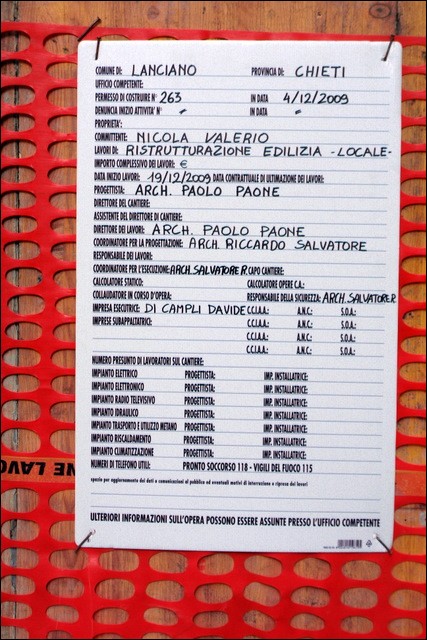 COMUNE DI: LANCIANO PROVINCIA DI: CHIETI
UFFICIO COMPETENTE:
PERMESSO DI COSTRUIRE N° 263 IN DATA 4/12/2009
DENUNCIA INIZIO ATTIVITA' N° - IN DATA -
PROPRIETA':
COMMITTENTE: NICOLA VALERIO
LAVORI DI: RISTRUTTURAZIONE EDILIZIA -LOCALE-
IMPORTO COMPLESSIVO DEI LAVORI: €
DATA INIZIO LAVORI: 19/12/2009 DATA CONTRATTUALE DI ULTIMAZIONE DEI LAVORI:
PROGETTISTA: ARCH. PAOLO PAONE
DIRETTORE DEL CANTIERE:
ASSISTENTE DEL DIRETTORE DI CANTIERE:
DIRETTORE DEI LAVORI: ARCH. PAOLO PAONE
COORDINATORE PER LA PROGETTAZIONE: ARCH. RICCARDO SALVATORE
RESPONSABILE DEI LAVORI:
COORDINATORE PER L'ESECUZIONE: ARCH. SALVATORE R. CAPO CANTIERE:
CALCOLATORE STATICO: CALCOLATORE OPERE C.A.:
COLLAUDATORE IN CORSO D'OPERA: RESPONSABILE DELLA SICUREZZA: ARCH. SALVATORE R.
IMPRESA ESECUTRICE: DI CAMPLI DAVIDE C.C.I.A.A.: A.N.C.: S.O.A.:
IMPRESE SUBAPPALTATRICI: C.C.I.A.A.: A.N.C.: S.O.A.:
C.C.I.A.A.: A.N.C.: S.O.A.:
C.C.I.A.A.: A.N.C.: S.O.A.:
NUMERO PRESUNTO DI LAVORATORI SUL CANTIERE:
IMPIANTO ELETTRICO PROGETTISTA: IMP. INSTALLATRICE:
IMPIANTO ELETTRONICO PROGETTISTA: IMP. INSTALLATRICE:
IMPIANTO RADIO TELEVISIVO PROGETTISTA: IMP. INSTALLATRICE:
IMPIANTO IDRAULICO PROGETTISTA: IMP. INSTALLATRICE:
IMPIANTO TRASPORTO E UTILIZZO METANO PROGETTISTA: IMP. INSTALLATRICE:
IMPIANTO RISCALDAMENTO PROGETTISTA: IMP. INSTALLATRICE:
IMPIANTO CLIMATIZZAZIONE PROGETTISTA: IMP. INSTALLATRICE:
NUMERI DI TELEFONO UTILI: PRONTO SOCCORSO 118 - VIGILI DEL FUOCO 115
spazio per aggiornamento dei dati o comunicazioni al pubblico ed eventuali motivi di interruzione o ripresa dei lavori
ULTERIORI INFORMAZIONI SULL'OPERA POSSONO ESSERE ASSUNTE PRESSO L'UFFICIO COMPETENTE
NE LAVO